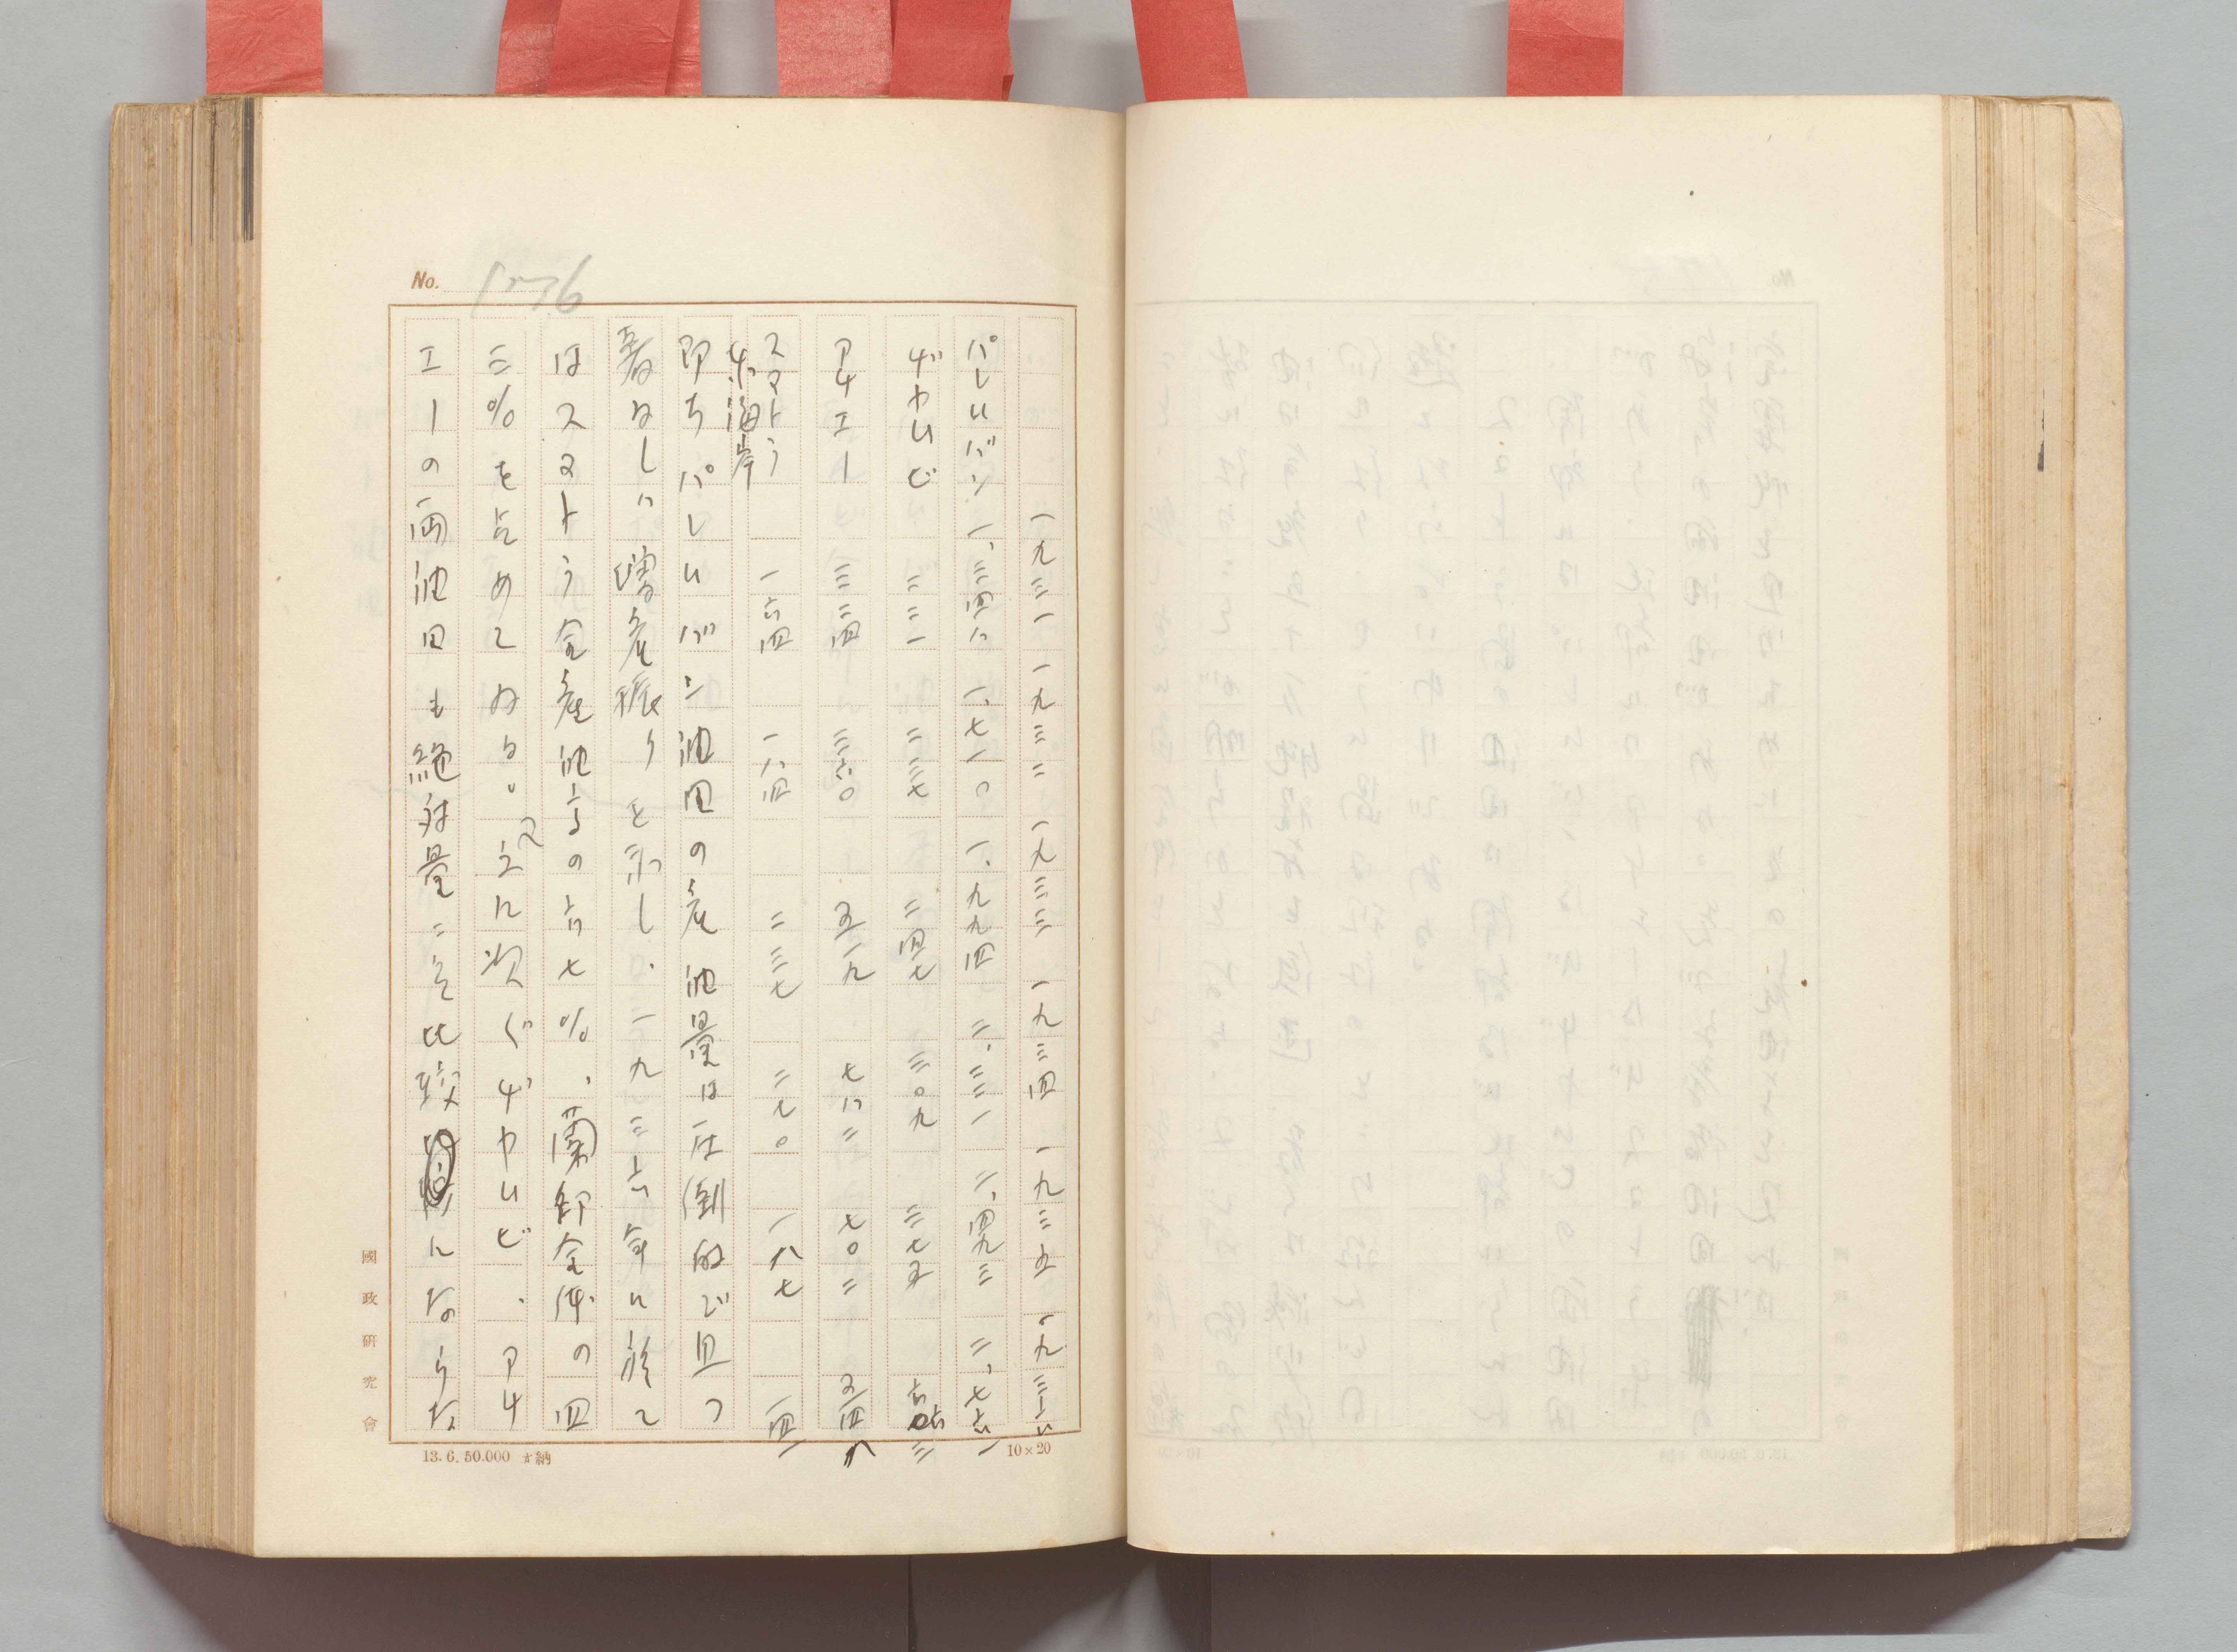 No.
一九三一 一九三二 一九三三 一九三四 一九三五 一九三六
パレムバン 一、三四八 一、七一〇 一、九九四 二、三三一 二、四九三 二、七六一
ヂャムビ 二三一 二三七 二四七 三〇九 三七五
アチエー 三三四 三六〇 五一九 七八二 七〇二 五四八
スマトラ東海岸 一六四 一八四 二三七 二七〇 一八七 一四一
即ちパレムバン油田の産油量は圧倒的で且つ
著るしい増産振りを示し、一九三六年に於て
はスマトラ全産油高の六七%、蘭印全体の四
三%を占めてゐる。之に次ぐヂャムビ、アチ
エーの両油田も絶対量こそ比較にならな
國政研究會
13.6.50.000
10×20